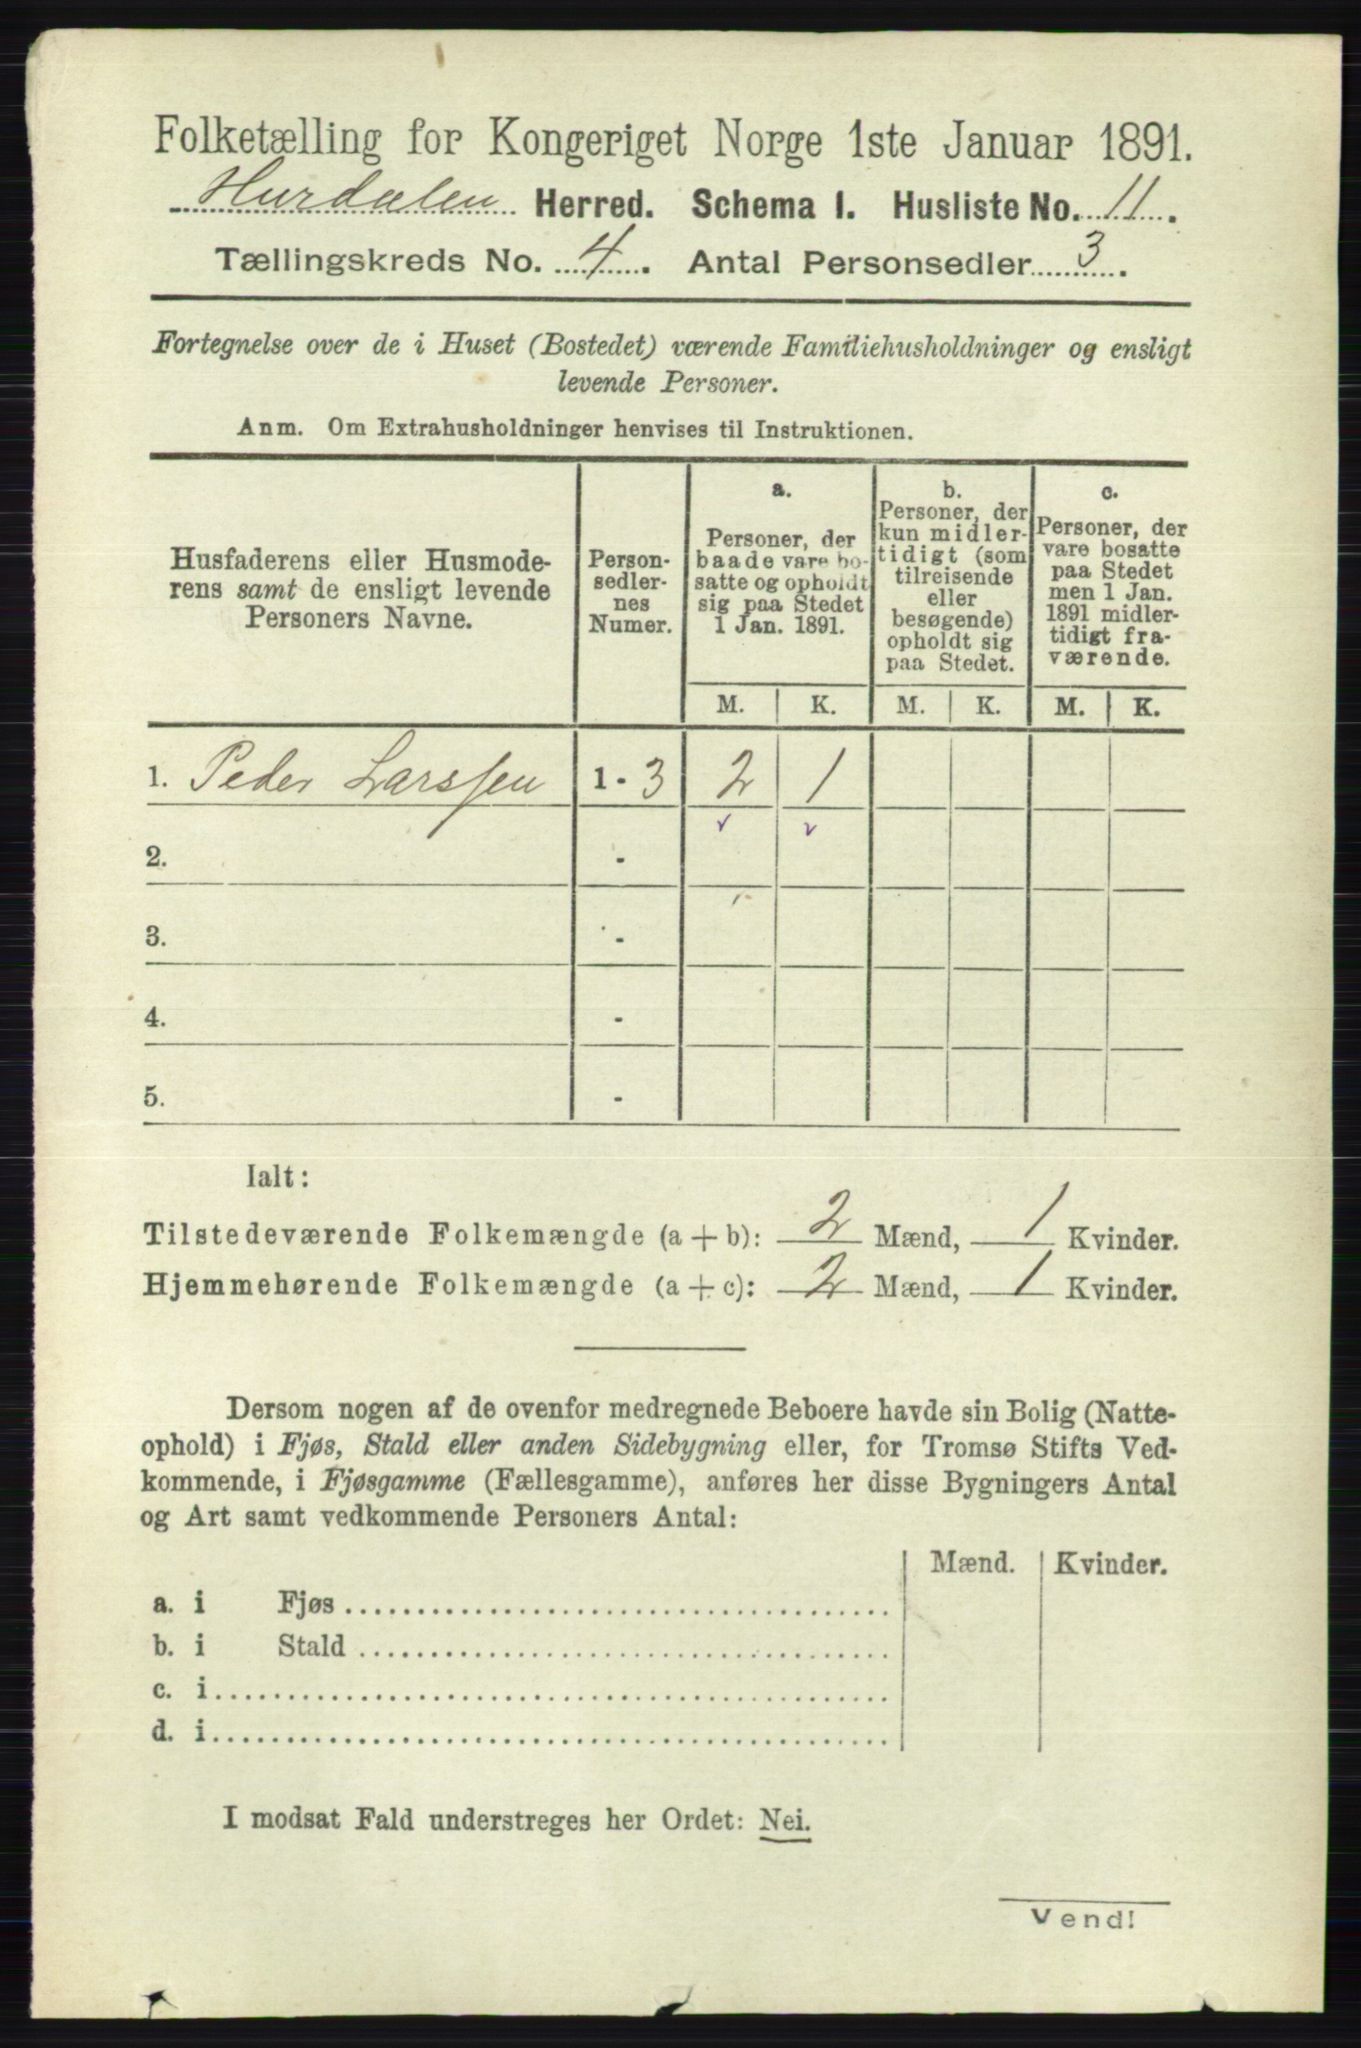 Folketælling for Kongeriget Norge 1ste Januar 1891.
Hurdalen Herred. Schema I. Husliste No. 11.
Tællingskreds No. 4. Antal Personsedler 3.
Fortegnelse over de i Huset (Bostedet) værende Familiehusholdninger og ensligt
levende Personer.
Anm. Om Extrahusholdninger henvises til Instruktionen.
Husfaderens eller Husmode-
rens samt de ensligt levende
Personers Navne.
Person-
sedler-
nes
Numer.
a.
Personer, der
baade vare bo-
satte og opholdt
sig paa Stedet
1 Jan. 1891.
b.
Personer, der
kun midler-
tidigt (som
tilreisende
eller
besøgende)
opholdt sig
paa Stedet.
c.
Personer, der
vare bosatte
paa Stedet
men 1 Jan.
1891 midler-
tidigt fra-
værende.
M. K. M. K. M. K.
1. Peder Larssen 1 - 3 2 1
2. -
3. -
4. -
5. -
Ialt:
Tilstedeværende Folkemængde (a + b): 2 Mænd, 1 Kvinder.
Hjemmehørende Folkemængde (a + c): 2 Mænd, 1 Kvinder.
Dersom nogen af de ovenfor medregnede Beboere havde sin Bolig (Natte-
ophold) i Fjøs, Stald eller anden Sidebygning eller, for Tromsø Stifts Ved-
kommende, i Fjøsgamme (Fællesgamme), anføres her disse Bygningers Antal
og Art samt vedkommende Personers Antal:
Mænd. Kvinder.
a. i Fjøs
b. i Stald
c. i
d. i
I modsat Fald understreges her Ordet: Nei.
Vend!